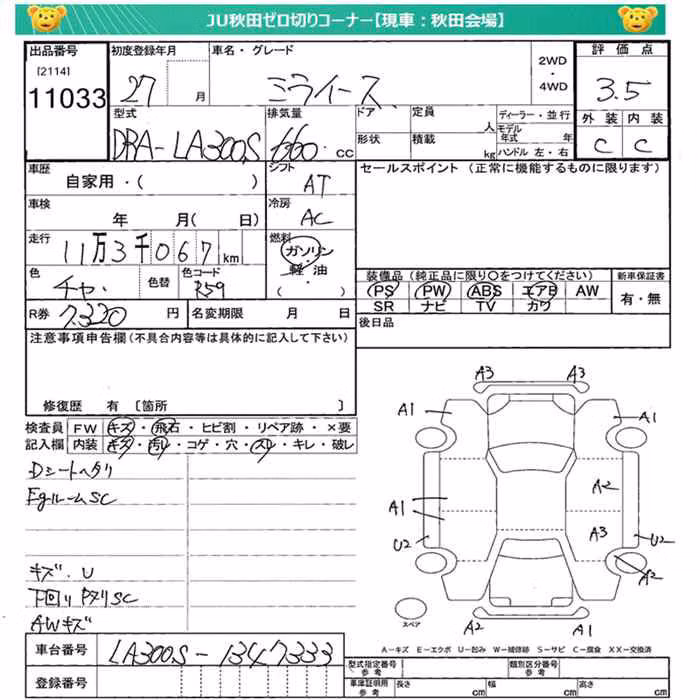 JU秋田ゼロ切りコーナー【現車：秋田会場】
出品番号 初度登録年月 車名・グレード 2WD・4WD 評価点
[2114]
11033 27 月 ミライース 3.5
型式 排気量 ドア 定員 人 ディーラー・並行 外装 内装
DBA-LA300S 660 cc 形状 積載 kg モデル年式 年 ハンドル 左・右 C C
車歴 シフト セールスポイント (正常に機能するものに限ります)
自家用・( ) AT
車検 冷房
年 月( 日) AC
走行 燃料
11万3千067km ガソリン・軽油
色 色替 色コード ( )
チャ R59
装備品 (純正品に限り○をつけてください) 新車保証書
PS PW ABS エアB AW 有・無
SR ナビ TV カワ
R券 7,320 円 名変期限 月 日 後日品
注意事項申告欄(不具合内容等は具体的に記入して下さい)
修復歴 有 〔箇所 〕
検査員 FW キズ・飛石・ヒビ割・リペア跡・×要
記入欄 内装 キズ・汚れ・コゲ・穴・スレ・キレ・破レ
Dシートヘタリ
EgルームSC
キズ．U
下回りPヌリSC
AWキズ
A3 A3
A1 A1
A2
A1
A1 A3
U2 U2
A2
A2 A1
スペア
A－キズ E－エクボ U－凹み W－補修跡 S－サビ C－腐食 XX－交換済
車台番号 LA300S-1347333
登録番号
型式指定番号 参考 類別区分番号 参考
車庫証明用 参考 長さ cm 幅 cm 高さ cm